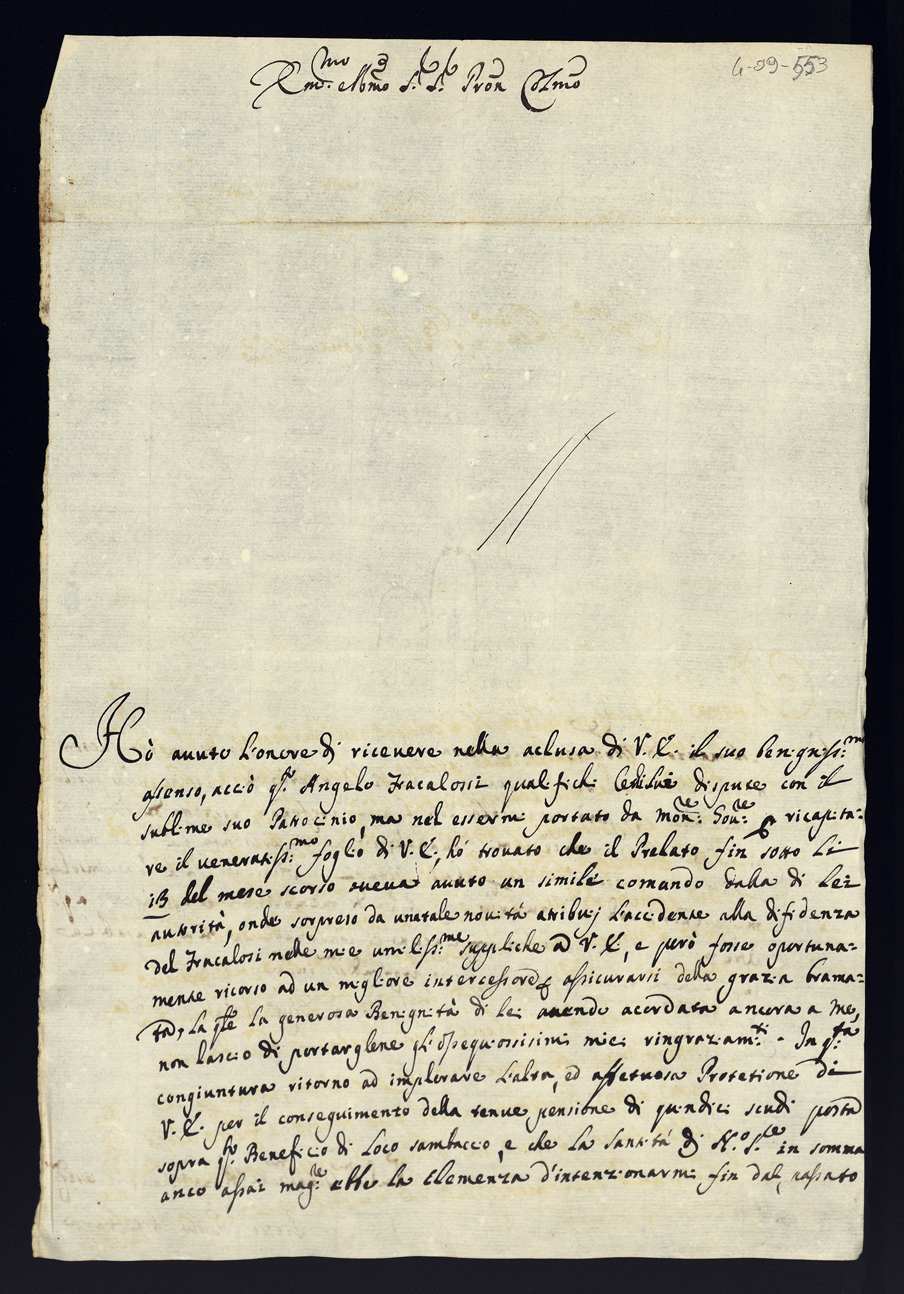 4-09-553
R.mo mo Sig. Sig. Pron Colmo
Hò avuto l'onore di ricevere nella aclusa di V. E. il suo benigniss:mo
assenso, acciò q.sto Angelo Fracalossi qualifichi le dispute con il
sublime suo Patrocinio, ma nel essermi portato da Mon:re Gov:re p ricapita-
re il veneratiss:mo foglio di V. E., hó trovato che il Prelato fin sotto li
18 del mese scorso aveva avuto un simile comando dalla di lei
autorità, onde sorpreso da una tale novità atribuj l'accidente alla difidenza
del Fracalosi nelle mie umiliss:me suppliche a V. E., e però fosse oportuna-
mente ricorso ad un migliore intercessore p assicurarsi della grazia brama-
ta, la q.le la generosa Benignità di lei avendo acordata ancora a me,
non lascio di portarglene gl'ossequiosissimi miei ringraziam:ti. In q:ta
congiuntura ritorno ad implorare l'alta, ed affetuosa Protetione di
V. E. per il conseguimento della tenue pensione di quindici scudi posta
sopra q.sto Beneficio di Loco sambucio, e che la Santità di N.o S.re in somma
anco assai mag:re ebbe la Clemenza d'intenzionarmi fin dal passato